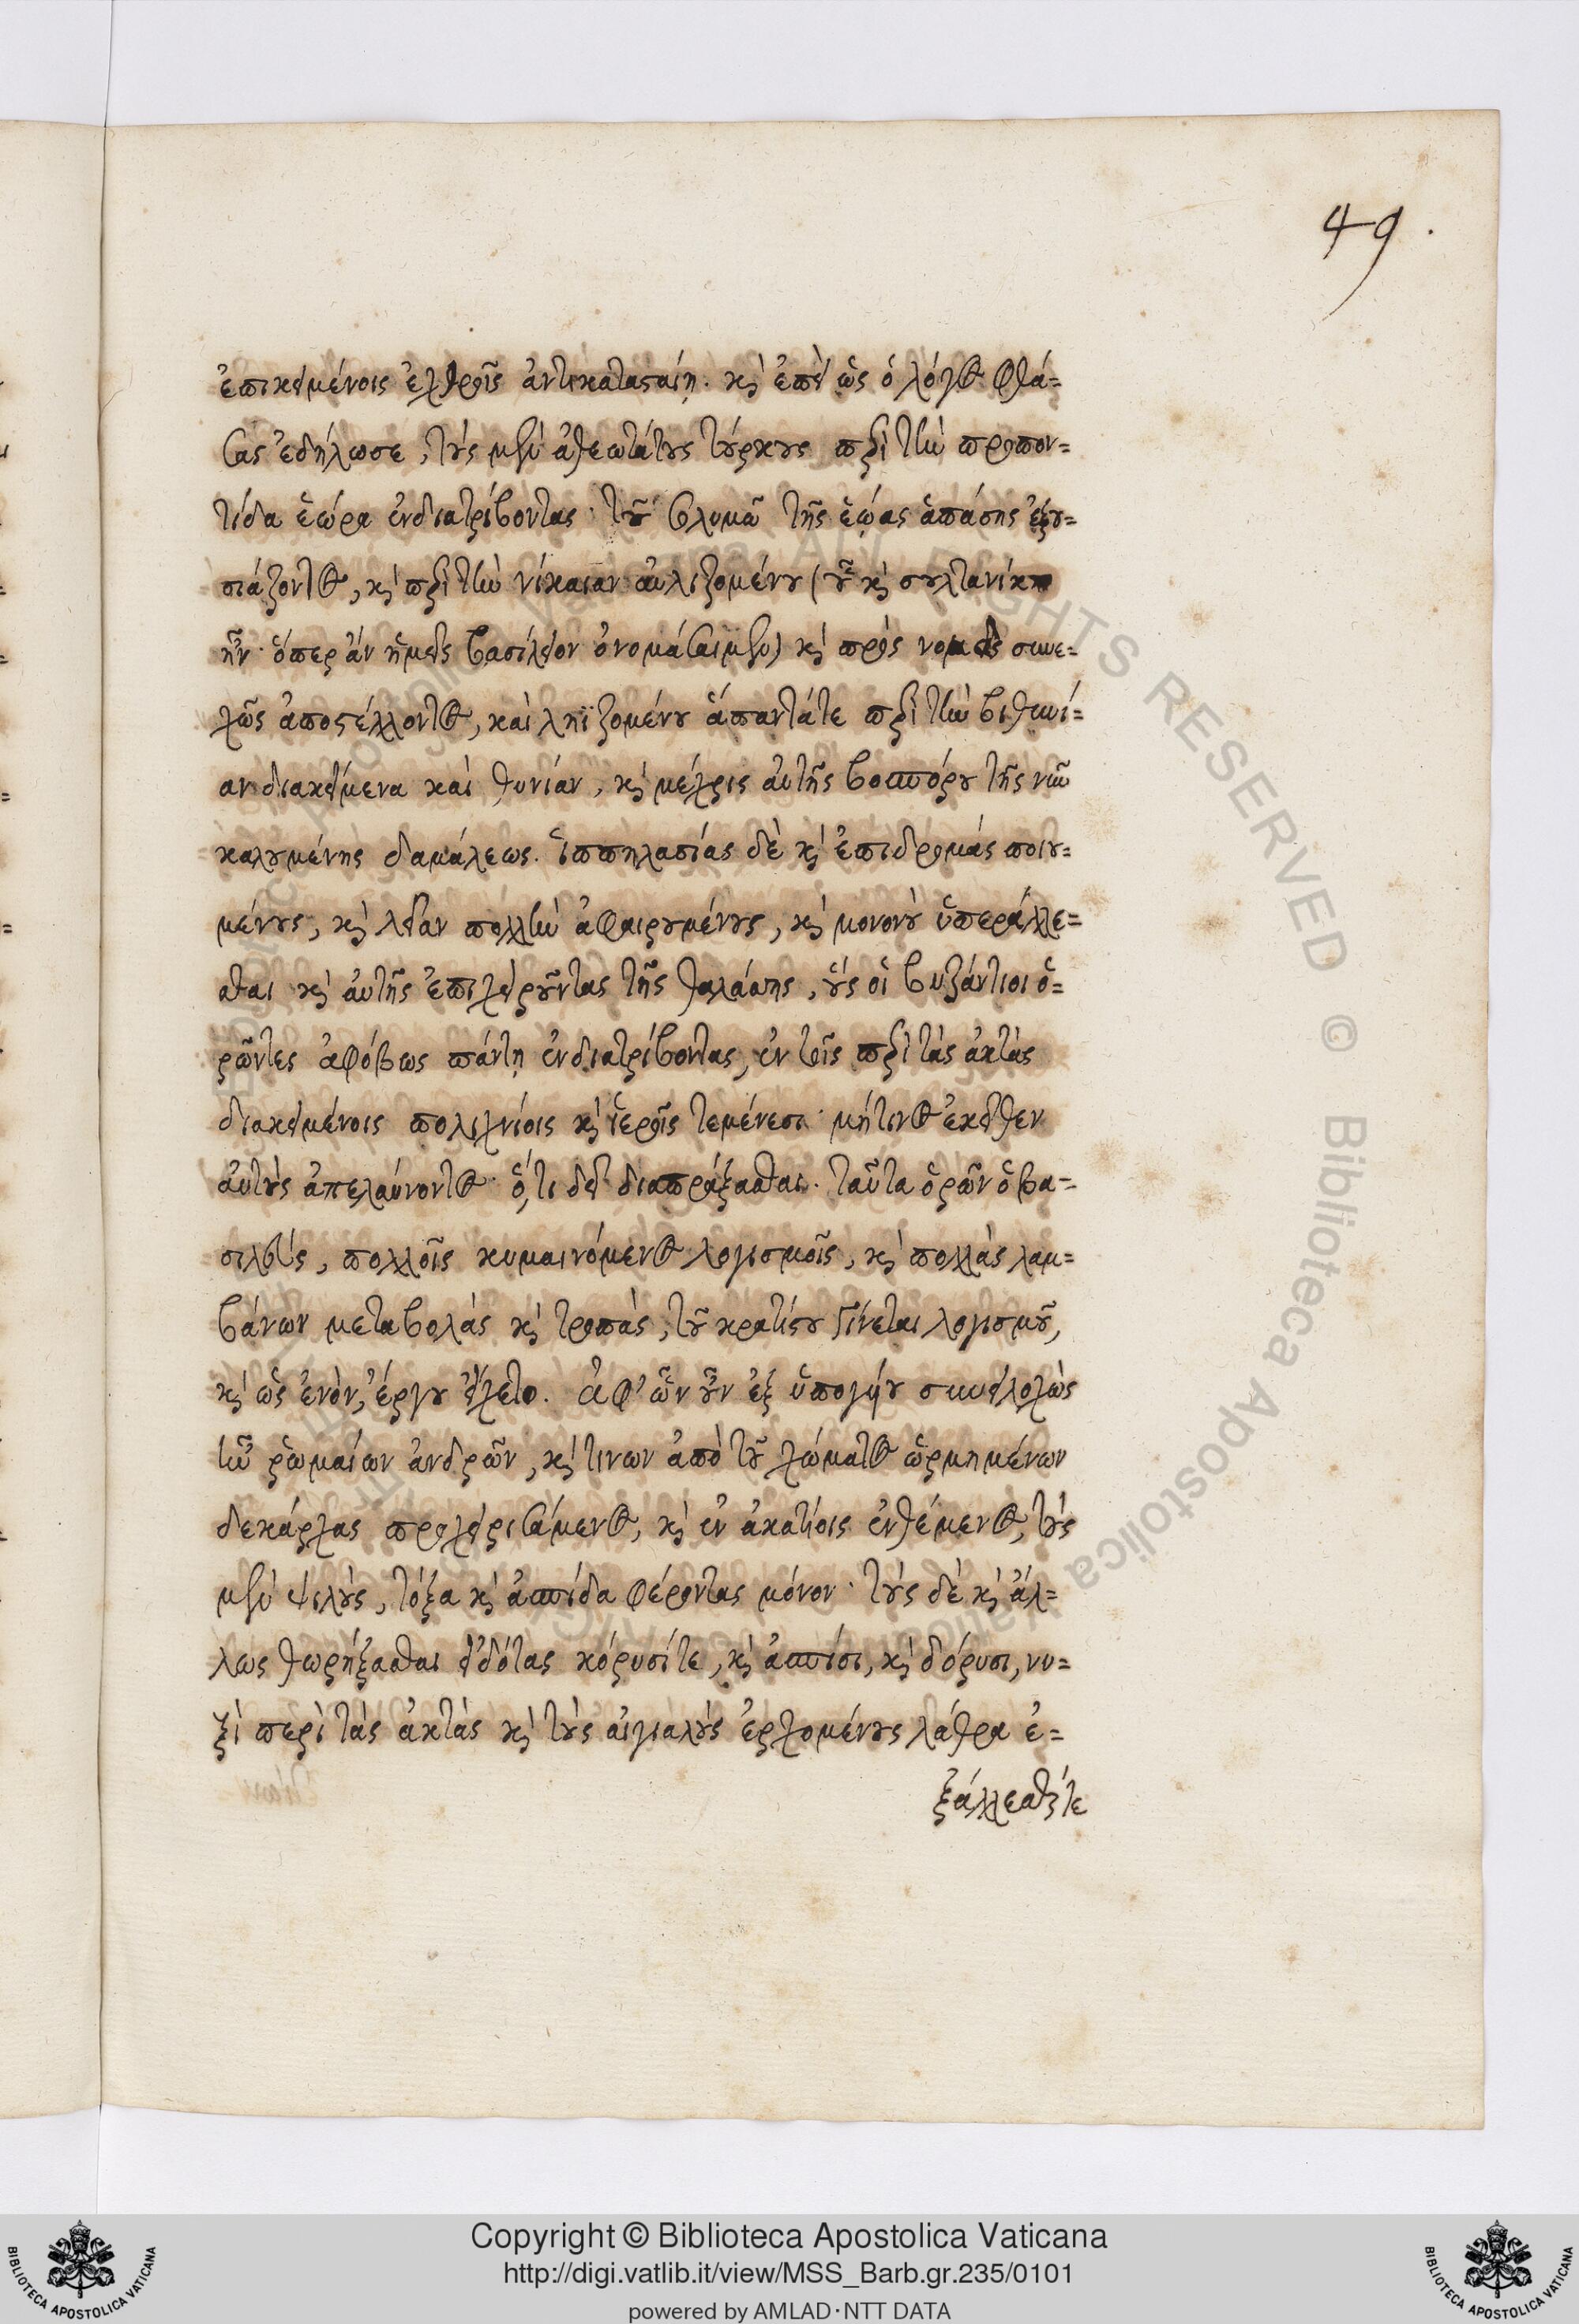 49.
ἐπικειμένοις ἐχθροῖς ἀντικατασταίη. καὶ ἐπεὶ ὡς ὁ λόγος φθά=
σας ἐδήλωσε, τοὺς μὲν ἀθεωτάτους τούρκους περὶ τὴν προπον=
τίδα ἑώρα ἐνδιατρίβοντας· τοῦ σολυμᾶ τῆς ἑῴας ἁπάσης ἐξου=
σιάζοντος, καὶ περὶ τὴν νίκαιαν αὐλιζομένου (οὗ καὶ σουλτανίκιον
ἦν· ὅπερ ἂν ἡμεῖς βασίλειον ὀνομάσαιμεν) καὶ προνομεῖς συνε=
χῶς ἀποστέλλοντος, καὶ ληϊζομένου ἅπαντά τε περὶ τὴν βιθυνί=
αν διακείμενα καὶ θυνίαν, καὶ μέχρις αὐτῆς βοσπόρου τῆς νῦν
καλουμένης δαμάλεως. ἱππηλασίας δὲ καὶ ἐπιδρομὰς ποιου=
μένους, καὶ λείαν πολλὴν ἀφαιρουμένους, καὶ μονονοὺ ὑπεράλλε=
σθαι καὶ αὐτῆς ἐπιχειροῦντας τῆς θαλάσσης, οὓς οἱ βυζάντιοι ὁ=
ρῶντες ἀφόβως πάντη ἐνδιατρίβοντας, ἐν τοῖς περὶ τὰς ἀκτὰς
διακειμένοις πολιχνίοις καὶ ἱεροῖς τεμένεσι· μήτινος ἐκεῖθεν
αὐτοὺς ἀπελαύνοντος· ὅ,τι δεῖ διαπράξασθαι. ταῦτα ὁρῶν ὁ βα=
σιλεὺς, πολλοῖς κυμαινόμενος λογισμοῖς, καὶ πολλὰς λαμ=
βάνων μεταβολὰς καὶ τροπὰς, τοῦ κρατίστου γίνεται λογισμοῦ,
καὶ ὡς ἐνὸν, ἔργου εἴχετο. ἀφ' ὧν οὖν ἐξ ὑπογύου συνειλοχὼς
τῶν ῥωμαίων ἀνδρῶν, καὶ τινων ἀπὸ τοῦ χώματος ὡρμημένων
δεκάρχας προχειρισάμενος, καὶ ἐν ἀκατίοις ἐνθέμενος, τοὺς
μὲν ψιλοὺς, τόξα καὶ ἀσπίδα φέροντας μόνον· τοὺς δὲ καὶ ἄλ=
λως θωρήξασθαι εἰδότας κόρυσί τε, καὶ ἀσπίσι, καὶ δόρυσι, νυ=
ξὶ περὶ τὰς ἀκτὰς καὶ τοὺς αἰγιαλοὺς ἐρχομένους λάθρα ἐ=
ξάλλεσθαί τε
BIBLIOTECA APOSTOLICA VATICANA
Copyright © Biblioteca Apostolica Vaticana
http://digi.vatlib.it/view/MSS_Barb.gr.235/0101
powered by AMLAD·NTT DATA
BIBLIOTECA APOSTOLICA VATICANA